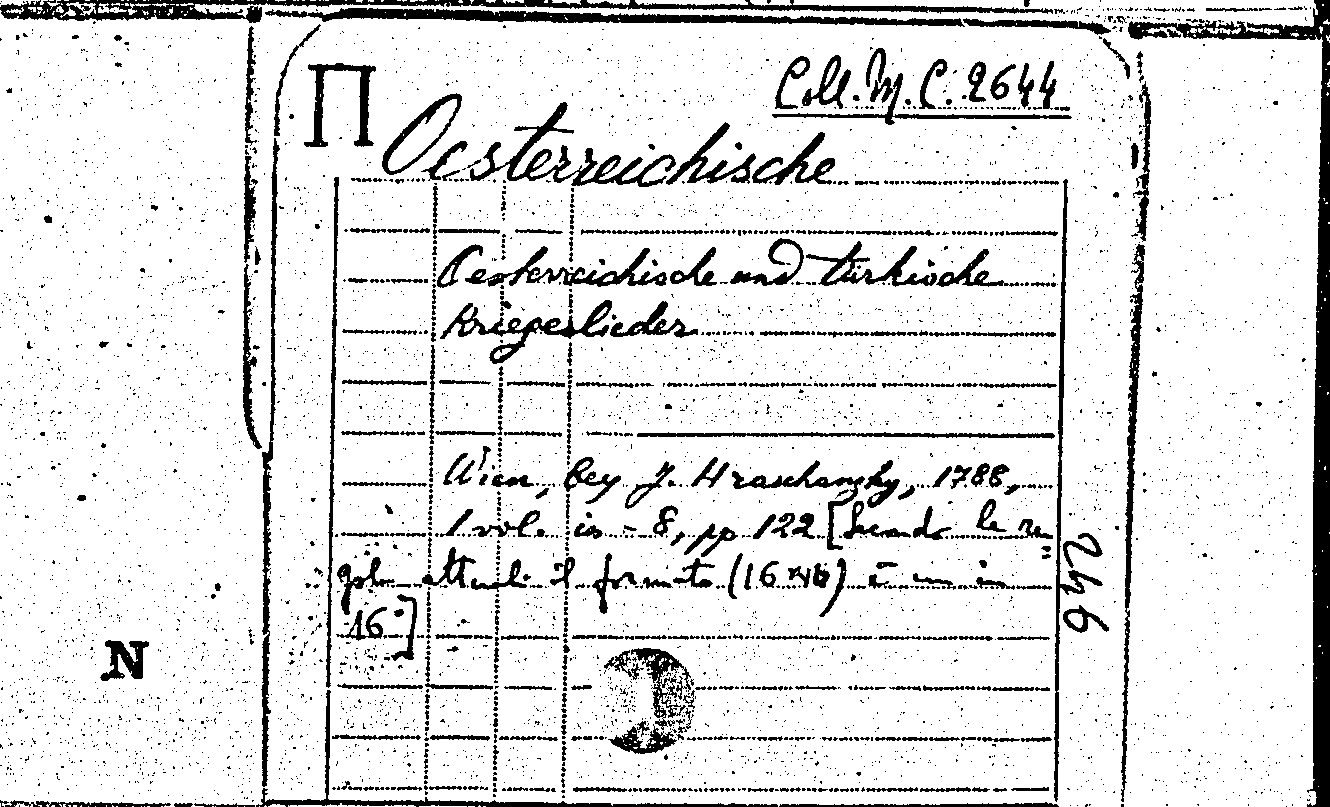 Π
Coll. M. C. 2644
Oesterreichische
Oesterreichische und türkische
Kriegeslieder
Wien, bey J. Hraschanzky, 1788,
1 vol. in - 8, pp 122 [Secondo le re
gole attuali il formato (16 × ) è un in
16°]
246
N